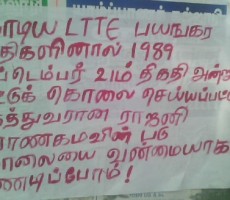 டிய LTTE பயங்கர
திகளினால் 1989
டெம்பர் 21ம் திகதி அன்
டுக் கொலை செய்யப்பட்ட
த்துவரான ராஜனி
ராணகமவின் படு
ாலையை வன்மையாக
ண்டிப்போம்!